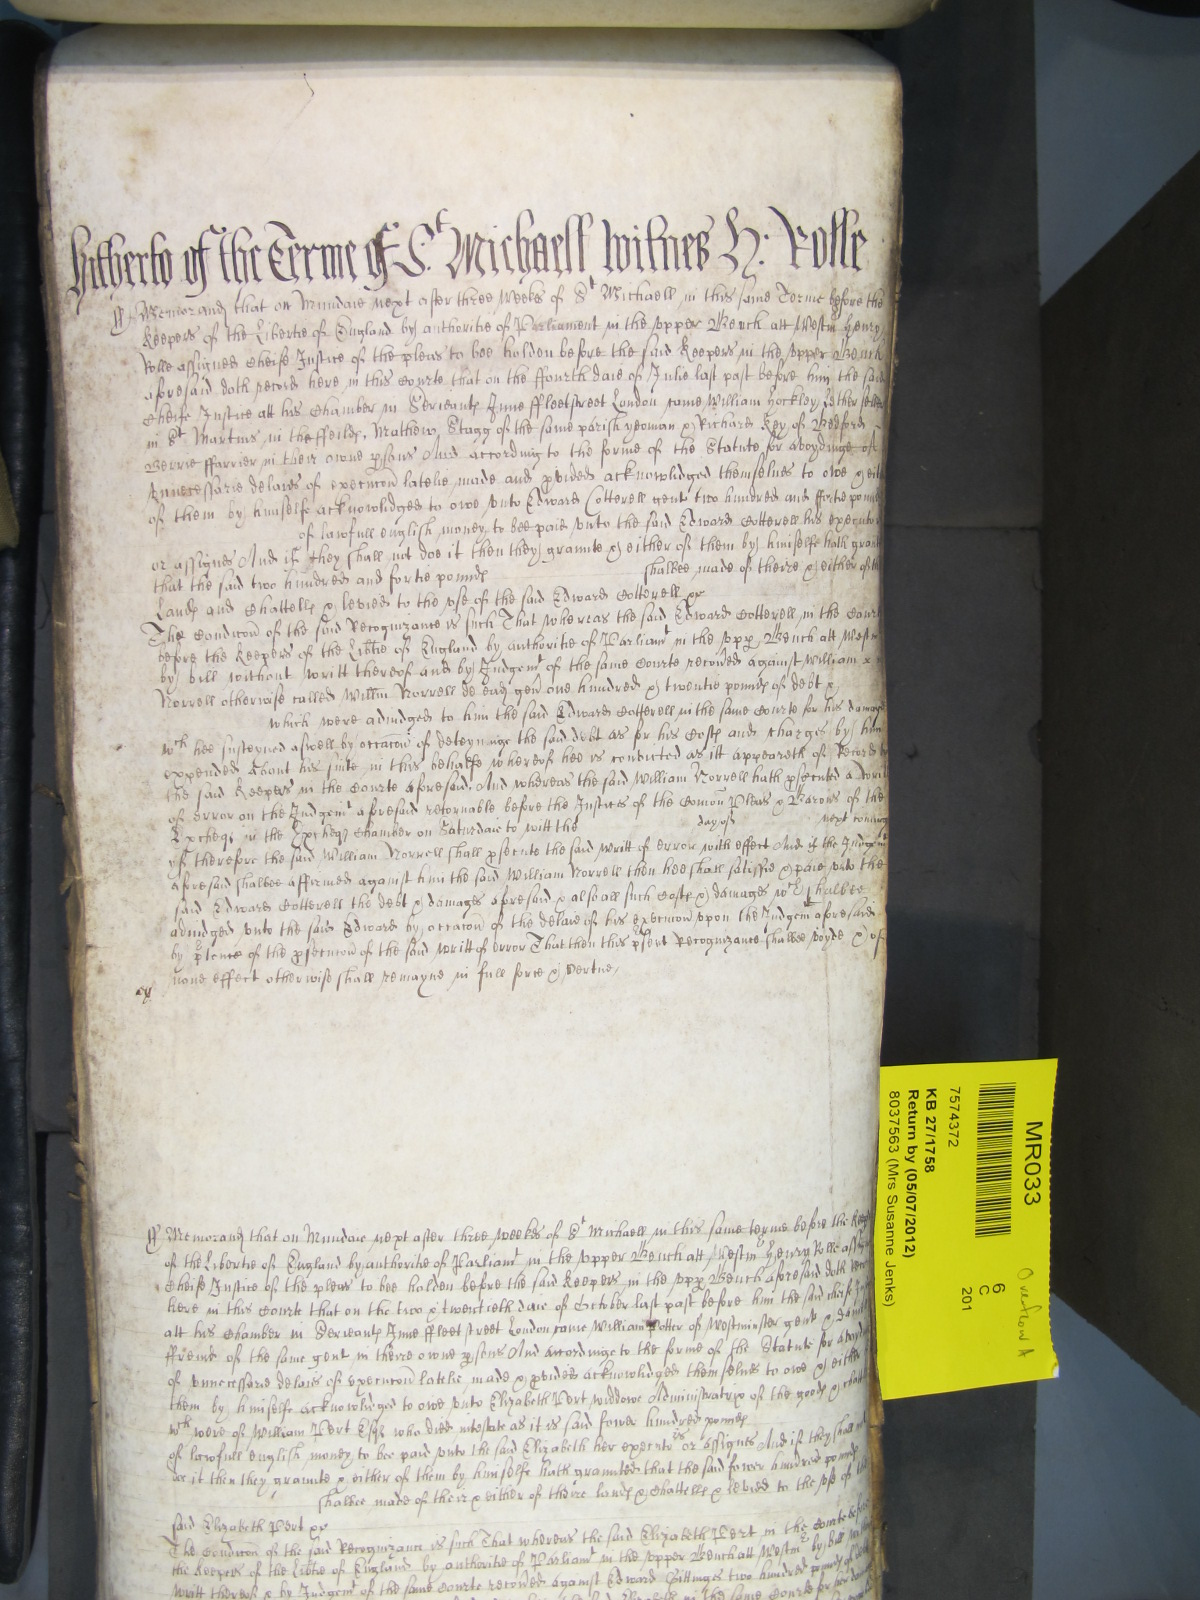 hitherto of the Terme of St Michaell Witnes H: Rolle
Memorand that on Mundaie next after three weeks of St Michaell in this same Terme before the
Keepers of the Libertie of England by authoritie of Parliament in the upper Bench att Westm Henry
Rolle assigned Cheife Justice of the pleas to bee holden before the said Keepers in the upper Bench
aforesaid doth record here in this Courte that on the ffourth daie of Julie last past before him the said
Cheife Justice att his Chamber in Serjeants Inne ffleetstreet London came William Hockley
in St Martins in the ffeilds, Mathew Stagg of the same parish yeoman & Richard Key of Bedford
Berrie ffarrier in their owne psons And according to the forme of the Statute for avoydinge of
Unnecessarie delaies of execucon latelie made and provided acknowlidged themselues to owe & eith
of them by himselfe acknowlidged to owe unto Edward Cotterell gent two hundred and fortie pounds
of lawfull english money to bee paid unto the said Edward Cotterell his executors
or assignes And if they shall not doe it then they graunte & either of them by himselfe hath graunt
that the said two hundred and fortie pounds shalbee made of theire & either of th
Lands and Chattells & levied to the use of the said Edward Cotterell
The Condicon of the said Recognizance is such That whereas the said Edward Cotterell in the Court
before the Keepers of the Libtie of England by authoritie of Parliamt in the upp Bench att Westm
by bill without writt thereof and by Judgemt of the same Courte recoued against William
Norrell otherwise called Willm Norrell de gen one hundred & twentie pounds of debt &
which were adiudged to him the said Edward Cotterell in the same Courte for his damages
wch hee susteyned aswell by occacon of deteyninge the said debt as for his Costs and charges by him
expended about his suite in this behalfe whereof hee is convicted as itt appeareth of Record
the said Keepers in the Courte aforesaid. And whereas the said William Norrell hath psecuted a writt
of error on the Judgemt aforesaid retornable before the Justices of the Comon Pleas & Barons of the
Excheqr in the Excheqr Chamber on Saturdaie to witt the day of next coming
yf therefore the said William Norrell shall psecute the said writt of error with effect And if the Judgemt
aforesaid shalbee affirmed against him the said William Norrell then hee shall satisfie & paie unto the
said Edward Cotterell the debt & damages aforesaid & also all such Costs & damages wch shalbee
adiudged unto the said Edward by occacon of the delaie of his execucon upon the Judgemt aforesaid
by ptence of the psecucon of the said writt of error That then this psent Recognizance shalbee voyde & of
none effect otherwise shall remayne in full force & vertue
Memorand that on Mundaie next after three weekes of St Michaell in this same terme before the Keep
of the Libertie of England by authoritie of Parliamt in the upper Bench att Westm Henry Rolle assign
Cheife Justice of the pleas to bee holden before the said Keepers in the upp Bench aforesaid doth recor
here in this Courte that on the two & twentieth daie of October last past before him the said cheife Just
att his Chamber in Serjeants Inne ffleetstreet London came William Potter of Westminster gent & Dani
ffreind of the same gent in theire owne psons And accordinge to the forme of the Statute for avoyd
of unnecessarie delaies of execucon latelie made & provided acknowlidged themselues to owe & either
them by himselfe acknowlidged to owe unto Elizabeth Pert widdowe Administratrix of the goods & chatt
wch were of William Pert Esqr who died intestate as it is said fower hundred pounds
of lawfull english money to be paid unto the said Elizabeth her executrs or assignes And if they shall not
doe it then they graunte & either of them by himselfe hath graunted that the said fower hundred pounds
shalbee made of their & either of theire lands & Chattells & levied to the use of the
said Elizabeth Pert
The Condicon of the said Recognizance is such That whereas the said Elizabeth Pert in the Courte before
the Keepers of the Libtie of England by authoritie of Parliamt in the upper Bench att Westm by bill with
writt thereof & by Judgemt of the same Courte recoued against Edward Gittinges two hundred pounds of
MR033
7574372
KB 27/1758
Return by (05/07/2012)
8037563 (Mrs Susanne Jenks)
6
C
201
Overflow A